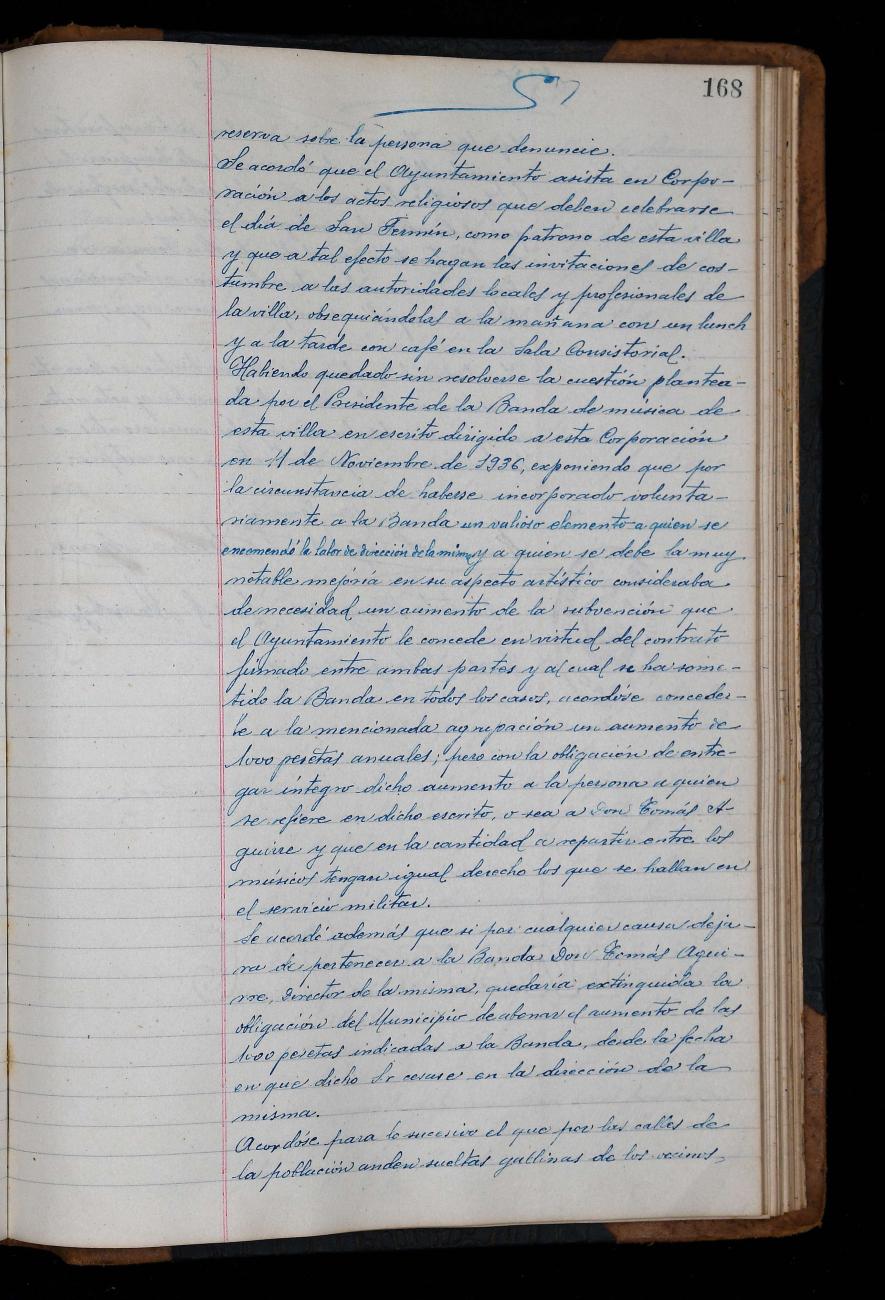 168
reserva sobre la persona que denuncie.
Se acordó que el Ayuntamiento asista en Corpo-
ración a los actos religiosos que deben celebrarse
el día de San Fermín, como patrono de esta villa
y que a tal efecto se hagan las invitaciones de cos-
tumbre a las autoridades locales y profesionales de
la villa, obsequiándolas a la mañana con un lunch
y a la tarde con café en la Sala Consistorial.
Habiendo quedado sin resolverse la cuestión plantea-
da por el Presidente de la Banda de música de
esta villa en escrito dirigido a esta Corporación
en 11 de Noviembre de 1936, exponiendo que por
la circunstancia de haberse incorporado volunta-
riamente a la Banda un valioso elemento a quien se
encomendó la labor de dirección de la misma y a quien se debe la muy
notable mejoría en su aspecto artístico consideraba
de necesidad un aumento de la subvención que
el Ayuntamiento le concede en virtud del contrato
firmado entre ambas partes y al cual se ha some-
tido la Banda en todos los casos, acordóse conceder-
le a la mencionada agrupación un aumento de
1000 pesetas anuales; pero con la obligación de entre-
gar íntegro dicho aumento a la persona a quien
se refiere en dicho escrito, o sea a Don Tomás A-
guirre y que en la cantidad a repartir entre los
músicos tengan igual derecho los que se hallan en
el servicio militar.
Se acordó además que si por cualquier causa deja-
ra de pertenecer a la Banda Don Tomás Agui-
rre, Director de la misma, quedaría extinguida la
obligación del Municipio de abonar el aumento de las
1000 pesetas indicadas a la Banda, desde la fecha
en que dicho Sr cesase en la dirección de la
misma.
Acordóse para lo sucesivo el que por las calles de
la población anden sueltas gallinas de los vecinos,